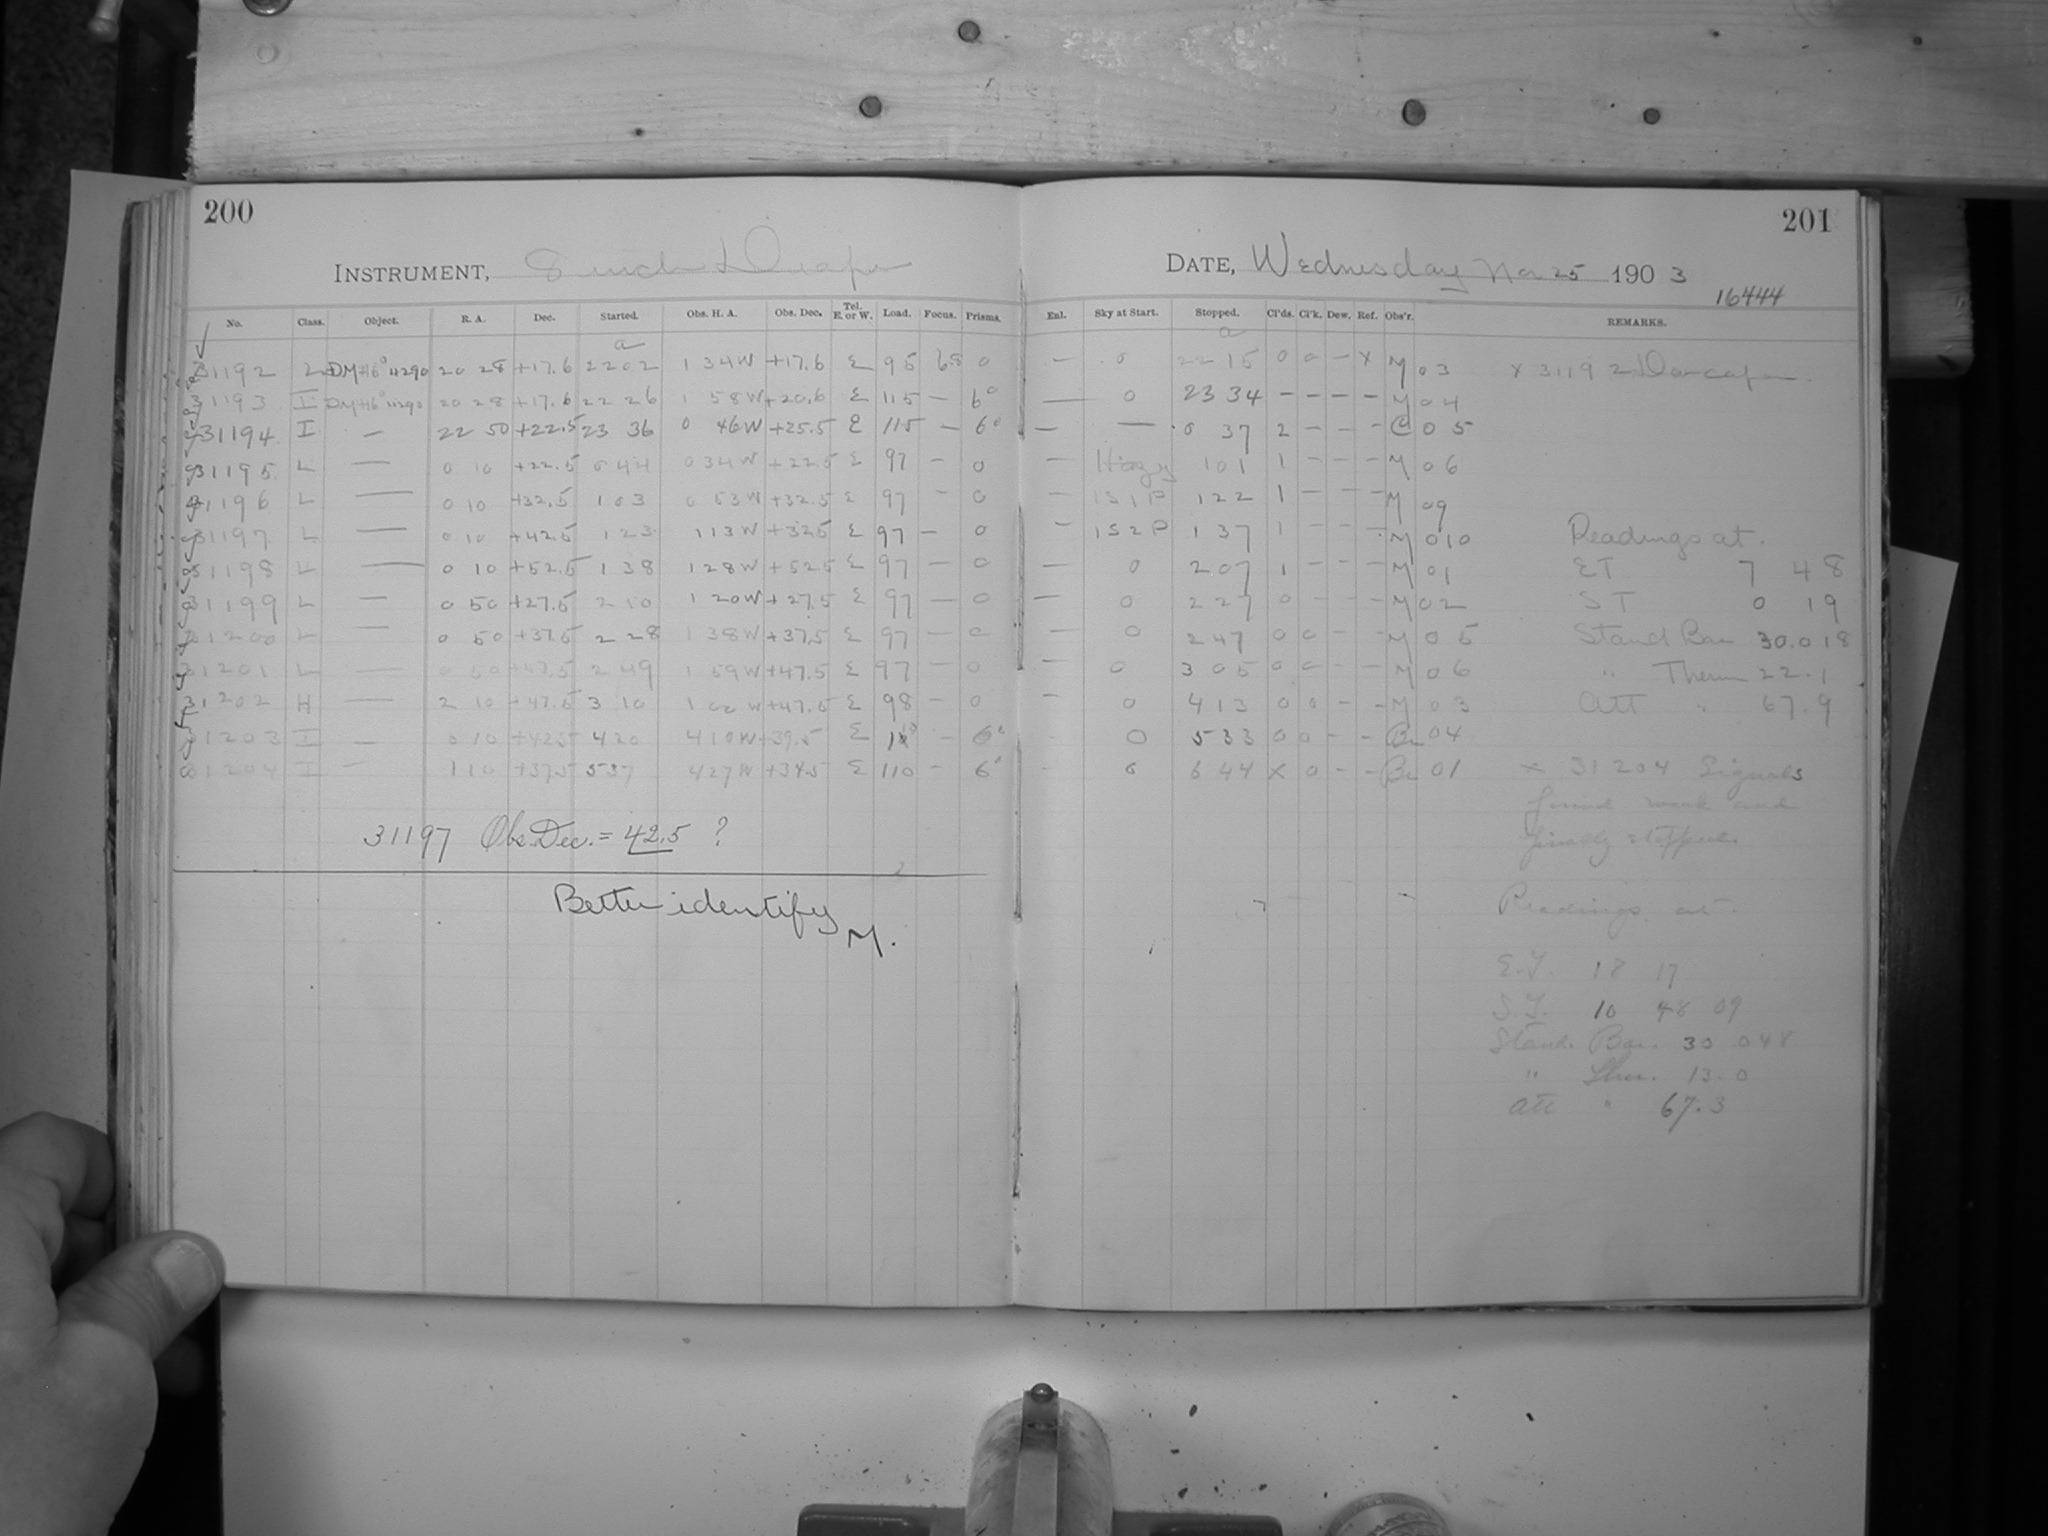 200
201
INSTRUMENT, 8 inch Draper
DATE, Wednesday Nov 25 1903
16444
No. Class. Object. R. A. Dec. Started. Obs. H. A. Obs. Dec. Tel. E. or W. Load. Focus. Prisms. Enl. Sky at Start. Stopped. Cl'ds. Cl'k. Dew. Ref. Obs'r. REMARKS.
a a
31192 L DM+16° 4290 20 28 +17.6 22 02 1 34W +17.6 E 95 6.8 0 — 0 22 15 0 0 — x M 03 x 31192
31193 I DM+16° 4290 20 28 +17.6 22 26 1 58W +20.6 E 115 — 6° — 0 23 34 — — — — M 04
31194 I — 22 50 +22.5 23 36 0 46W +25.5 E 115 — 6° — — 0 37 2 — — — C 05
31195 L — 0 10 +22.5 0 44 0 34W +22.5 E 97 — 0 — Hazy 1 01 1 — — — M 06
31196 L — 0 10 +32.5 1 03 0 53W +32.5 E 97 — 0 — 1S1P 1 22 1 — — — M 09
31197 L — 0 10 +42.5 1 23 1 13W +32.5 E 97 — 0 — 1S2P 1 37 1 — — — M 010
31198 L — 0 10 +52.5 1 38 1 28W +52.5 E 97 — 0 — 0 2 07 1 — — — M 01
31199 L — 0 50 +27.5 2 10 1 20W +27.5 E 97 — 0 — 0 2 27 0 — — — M 02
31200 L — 0 50 +37.5 2 28 1 38W +37.5 E 97 — 0 — 0 2 47 0 0 — — M 05
31201 L — 0 50 +47.5 2 49 1 59W +47.5 E 97 — 0 — 0 3 05 0 0 — — M 06
31202 H — 2 10 +47.5 3 10 1 00W +47.5 E 98 — 0 — 0 4 13 0 0 — — M 03
31203 I — 0 10 +42.5 4 20 4 10W +39.5 E — 6° 0 5 33 0 0 — — Br 04
31204 I — 1 10 +37.5 5 37 4 27W +34.5 E 110 — 6° — 0 6 44 x 0 — — Br 01
31197 Obs. Dec. = 42.5 ?
Better identify
M.
Readings at.
ET 7 48
ST 0 19
Stand Bar 30.018
" Therm 22.1
Att " 67.9
x 31204 Signals
found weak and
finally stopped.
Readings at.
E.T. 18 17
S.T. 10 48 09
Stand. Bar. 30 048
" Ther. 13.0
Att " 67.3